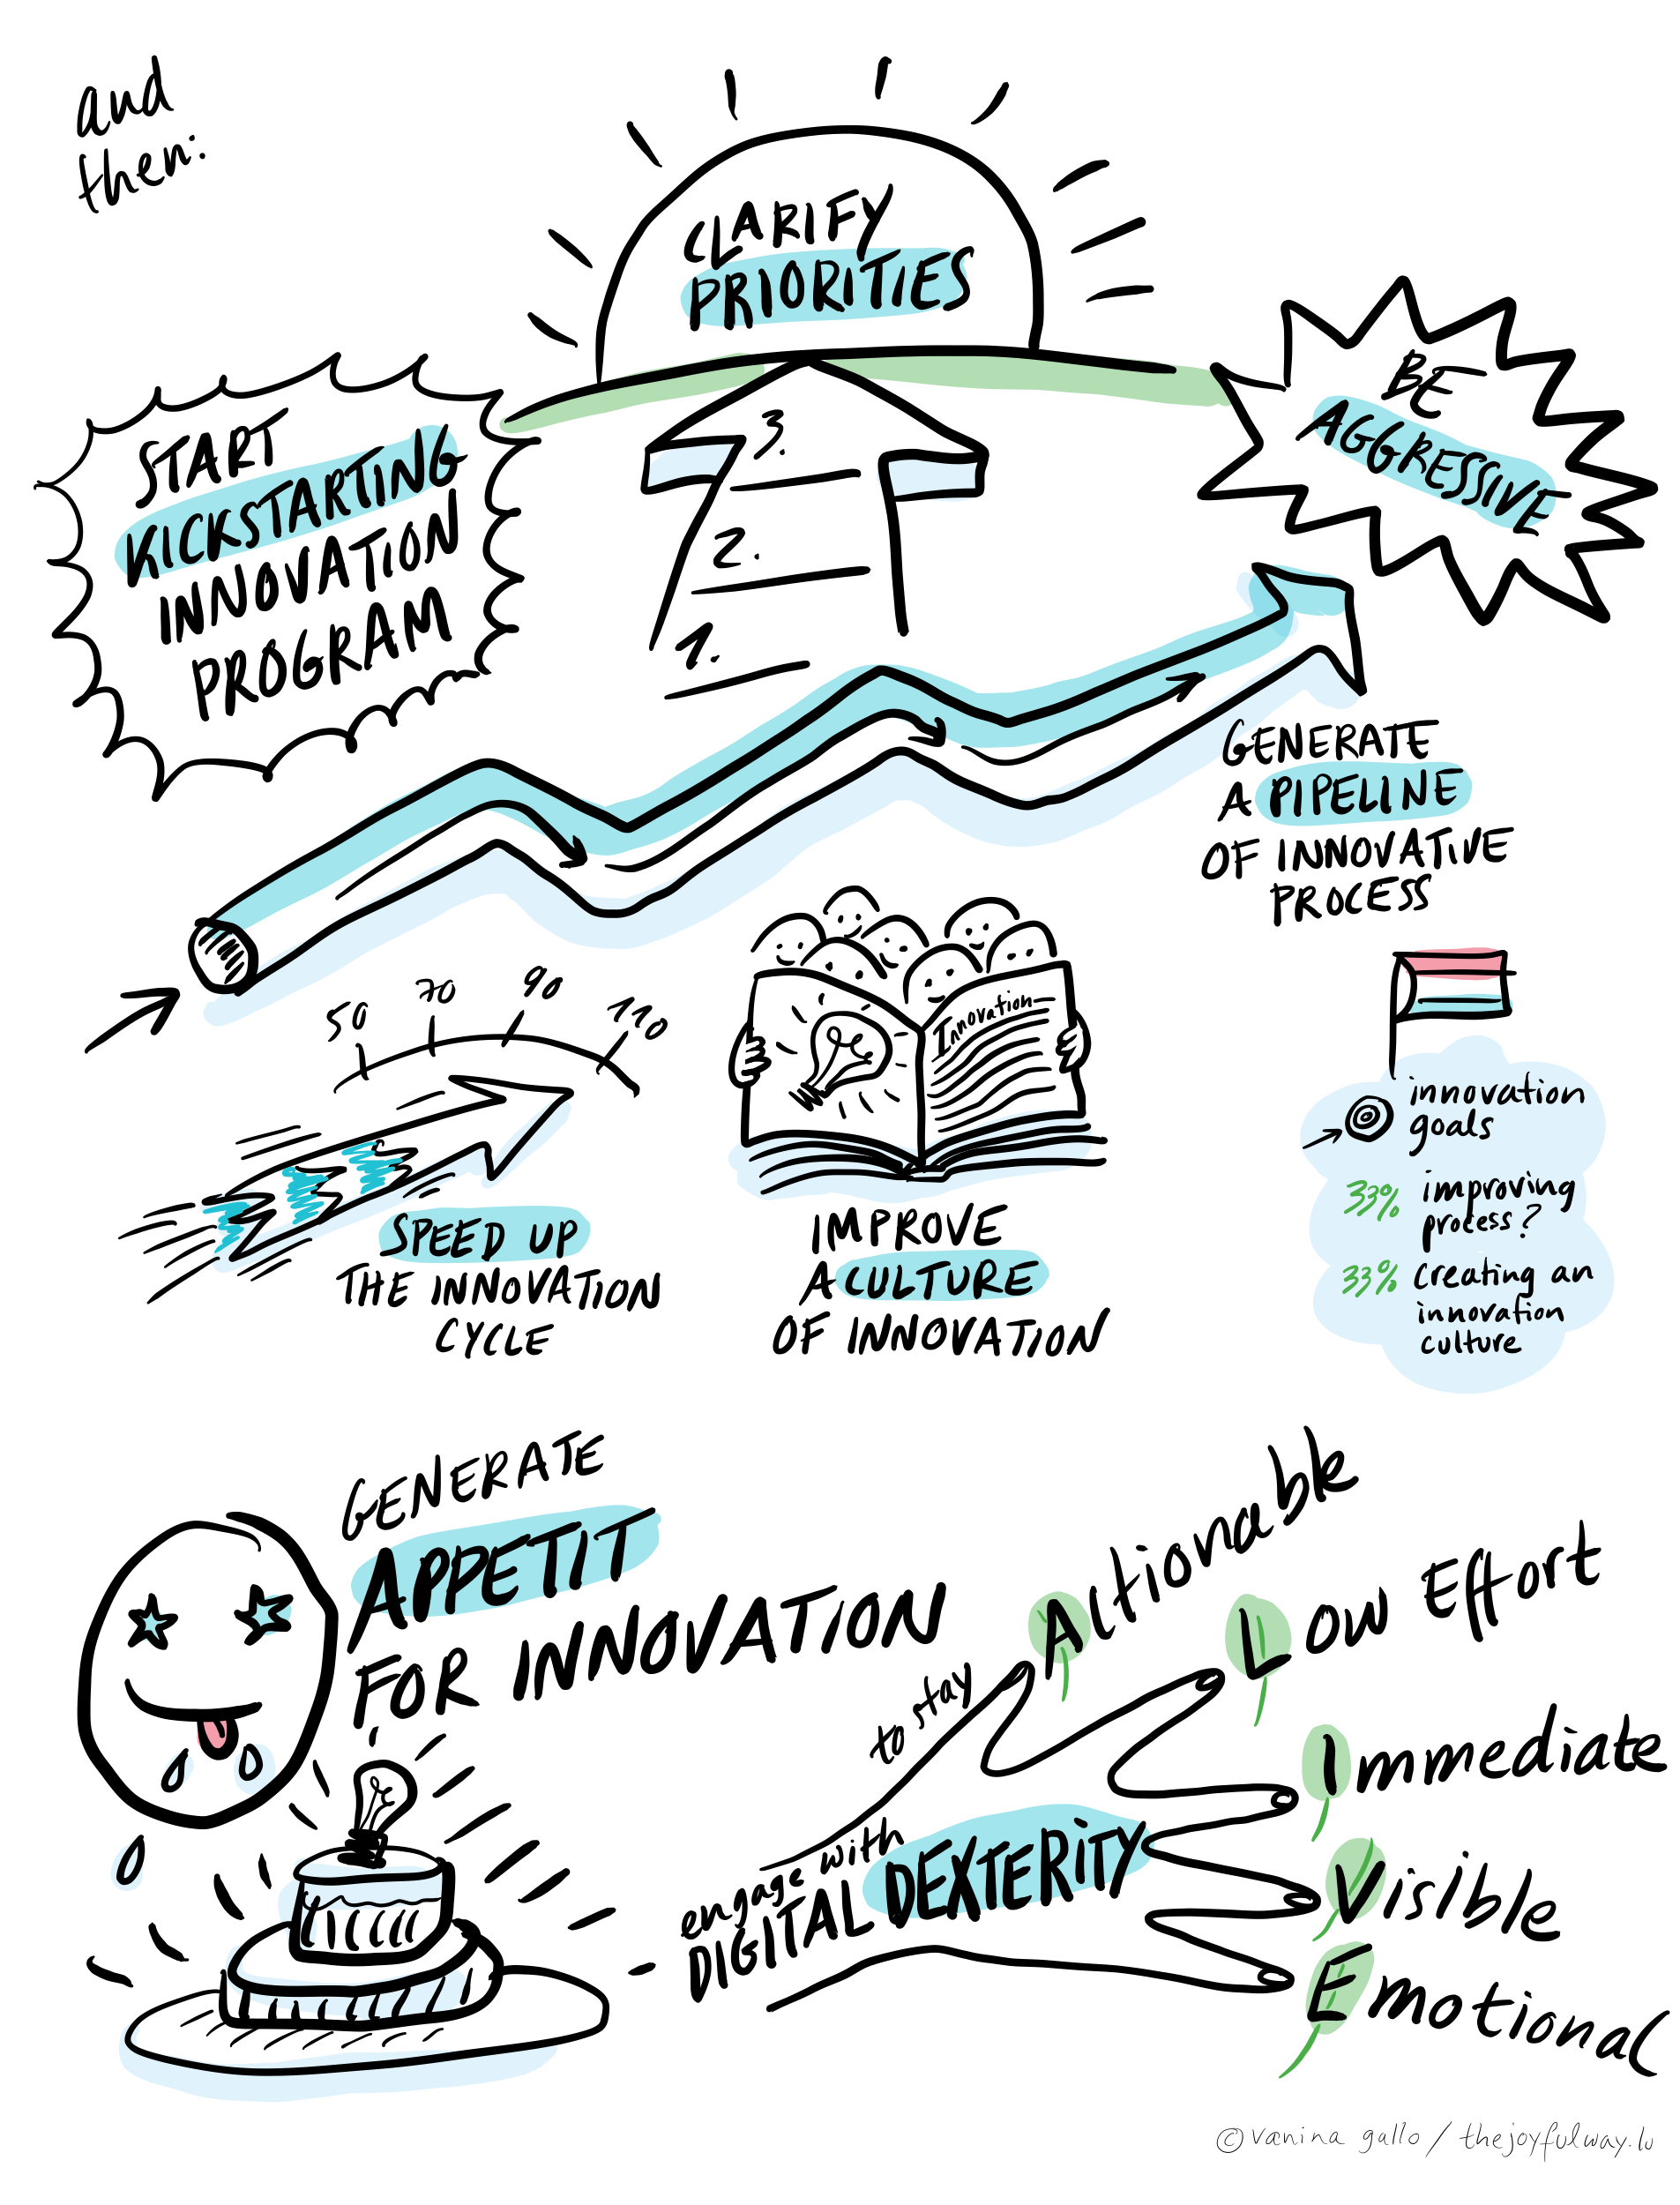 and
then:
CLARIFY
PRIORITIES
START
KICKSTARTING
INNOVATION
PROGRAM
3.
2.
1.
BE
AGGRESSIVE
GENERATE
A PIPELINE
OF INNOVATIVE
PROCESS
50 70 90 110
SPEED UP
THE INNOVATION
CYCLE
Innovation
IMPROVE
A CULTURE
OF INNOVATION
innovation
goals
33% improving
process?
33% creating an
innovation
culture
GENERATE
APPETIT
FOR INNOVATION
to stay
engage with
DIGITAL DEXTERITY
Actionable
Low Effort
Immediate
Visible
Emotional
© vanina gallo / thejoyfulway.lu